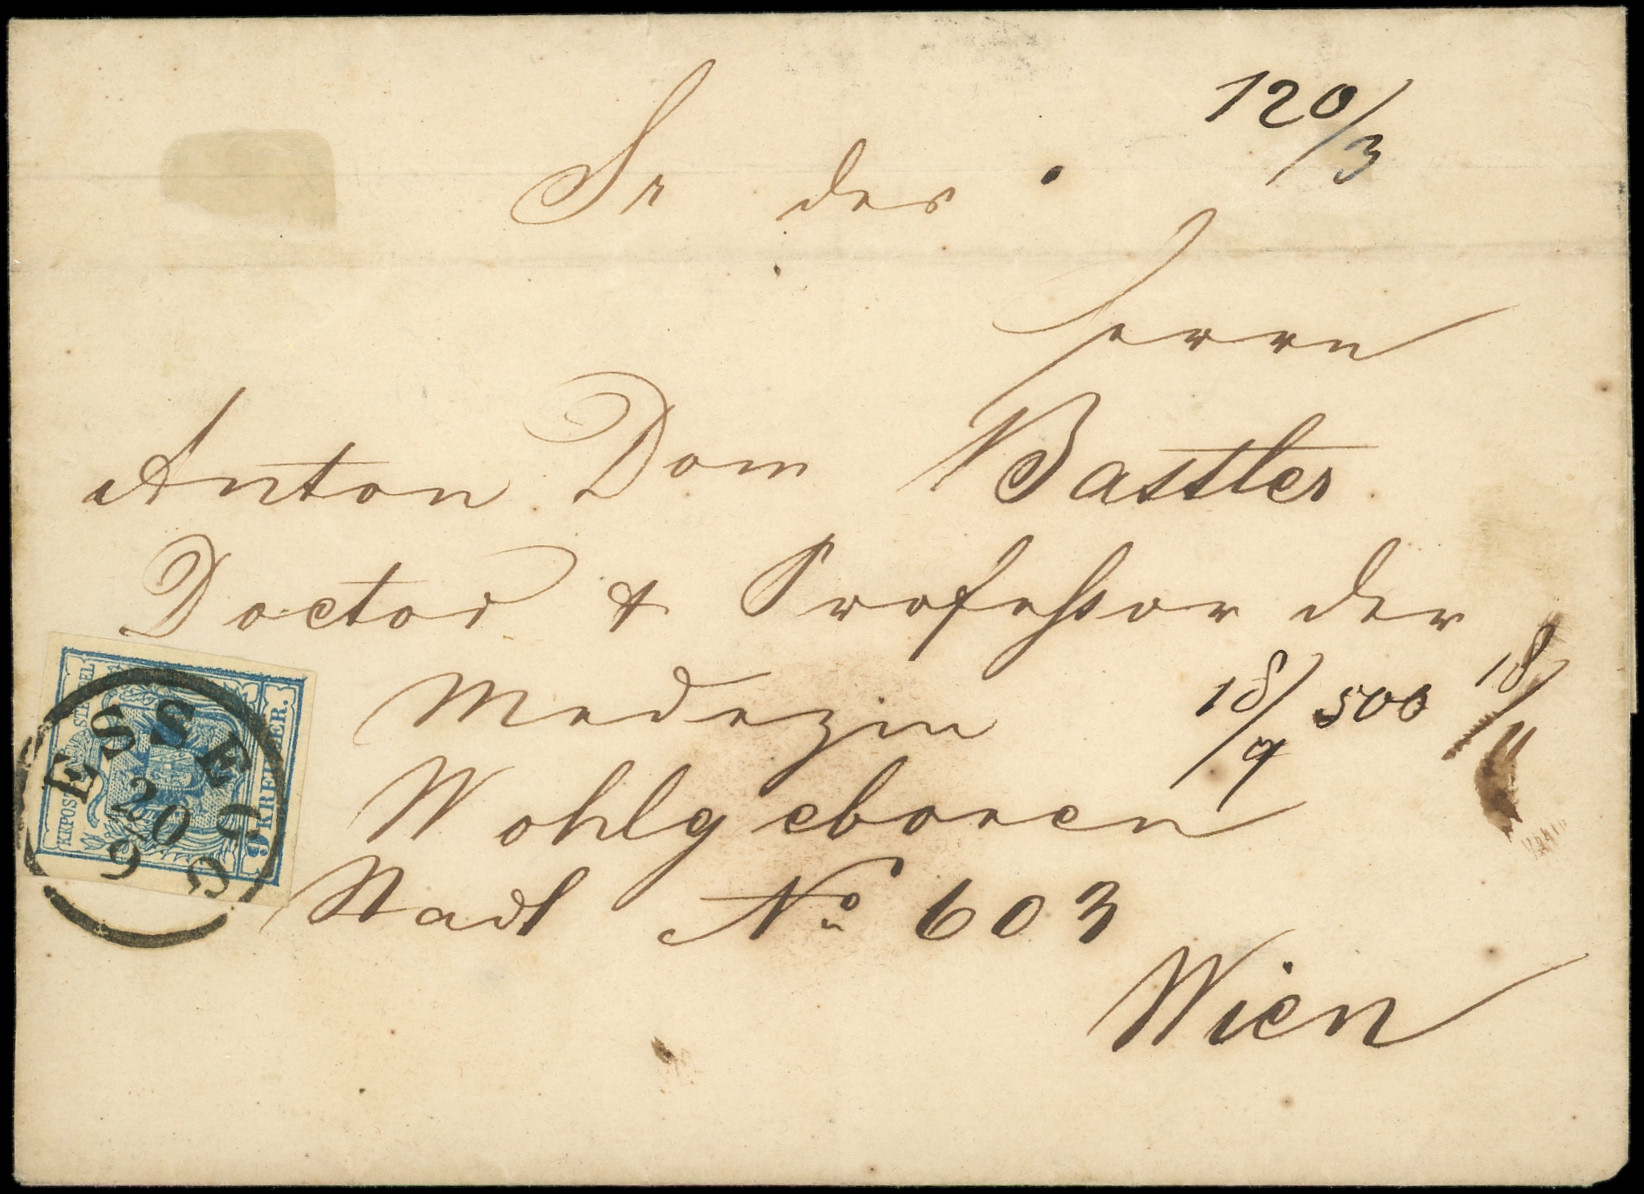 120/3
Sr des
Herrn
Anton Dom Bastler
Doctor & Professor der
Medezin
18/9 500 18/11
Wohlgeboren
Stadt No 603
Wien
KKPOST STEMPEL
9 KREUZER.
ESSEGG
20/9